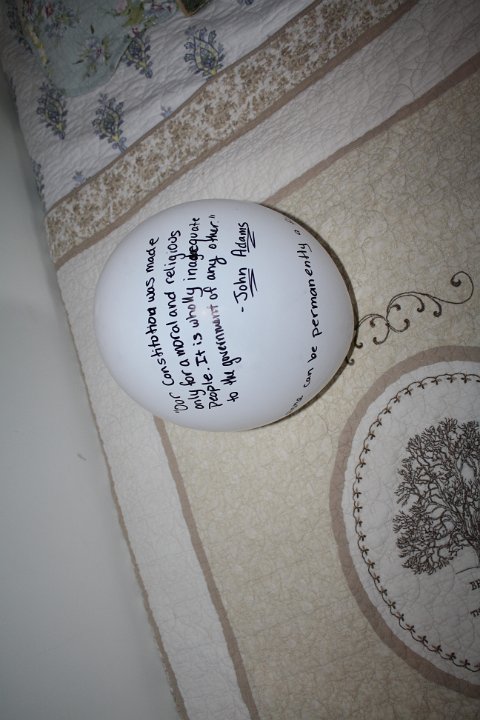 "Our Constitution was made
only for a moral and religious
people. It is wholly inadequate
to the government of any other."
- John Adams
can be permanently